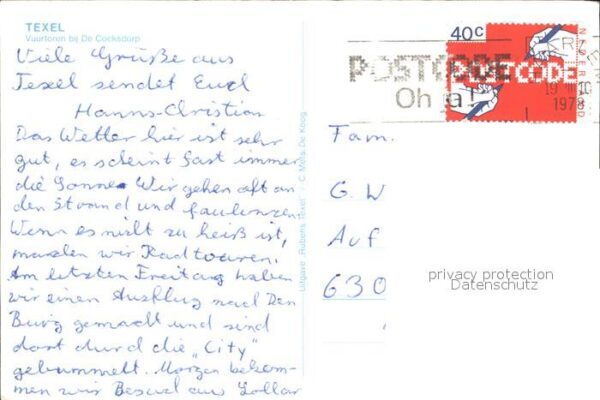 TEXEL
Vuurtoren bij De Cocksdorp
Viele Grüße aus
Texel sendet Euch
Hanns-Christian
Das Wetter hier ist sehr
gut, es scheint fast immer
die Sonne. Wir gehen oft an
den Strand und faulenzen.
Wenn es nicht zu heiß ist,
machen wir Radtouren.
Am letzten Freitag haben
wir einen Ausflug nach Den
Burg gemacht und sind
dort durch die „City"
gebummelt. Morgen bekom-
men wir Besuch aus Lollar
Uitgave „Rubens Texel" / C. Mells, De Koog
40c
NEDERLAND
POSTCODE
POSTCODE
Oh ja!
19
1978
Fam.
G. W
Auf
630
privacy protection
Datenschutz